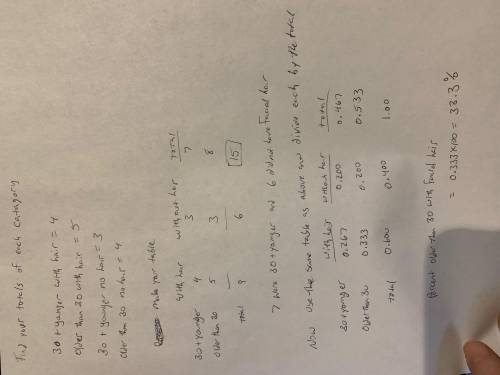 Find your totals of each catagory
30 + yanger with hair = 4
older than 30 with hair = 5
30 + younger no hair = 3
older than 30 no hair = 4
make your table
with hair without hair total
30 + younger 4 3 7
older than 30 5 3 8
total 9 6 15
7 were 30 + yanger and 6 did not have Facial hair
Now use the same table as above and divide each by the total
with hair without hair total
30 + younger 0.267 0.200 0.467
older than 30 0.333 0.200 0.533
total 0.600 0.400 1.00
Percent older than 30 with Facial hair
= 0.333 x 100 = 33.3 %